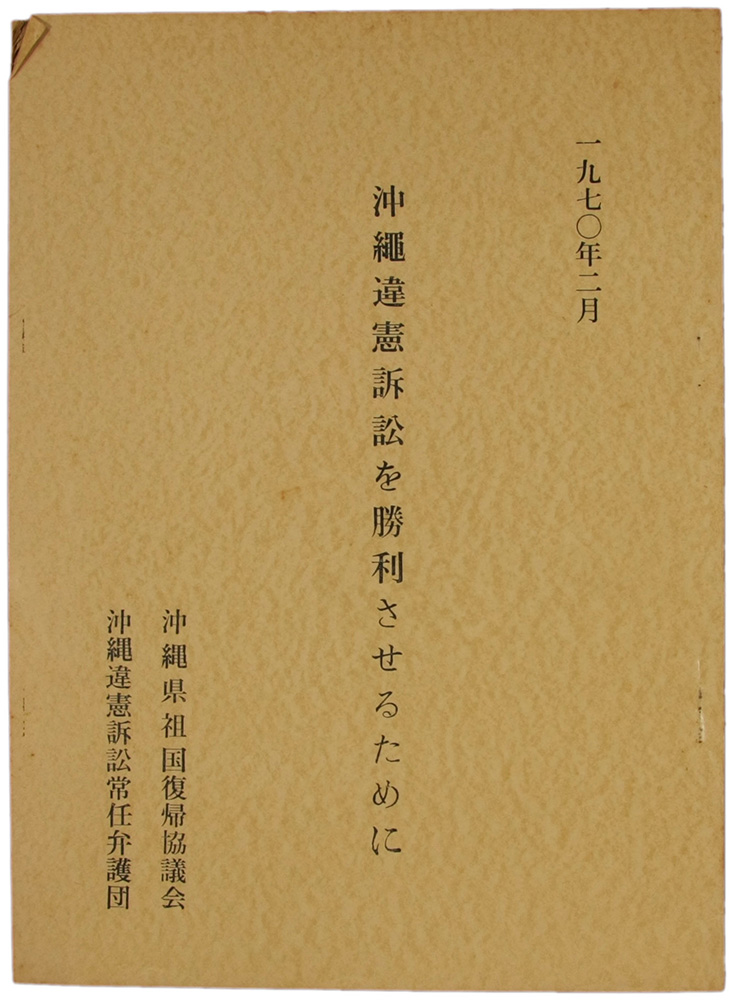 一九七〇年二月
沖繩違憲訴訟を勝利させるために
沖縄県祖国復帰協議会
沖縄違憲訴訟常任弁護団